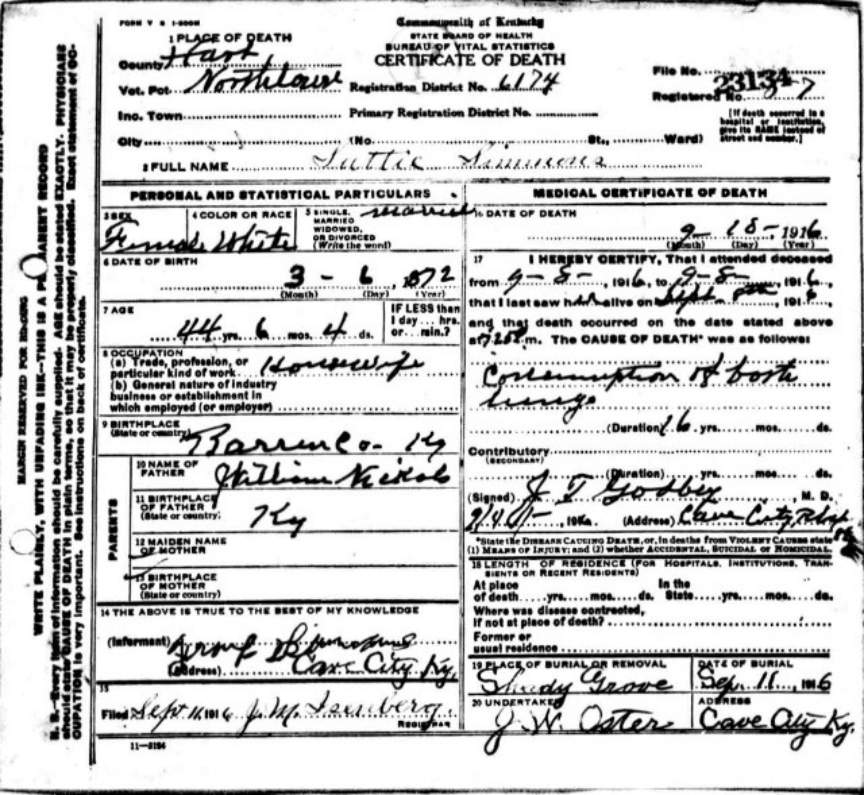 FORM V S 1-200M
Commonwealth of Kentucky
STATE BOARD OF HEALTH
BUREAU OF VITAL STATISTICS
CERTIFICATE OF DEATH
1 PLACE OF DEATH
County Hart
Vot. Pct. Northtown Registration District No. 6174
File No. 23134
Inc. Town Primary Registration District No.
Registered No. 7
[If death occurred in a hospital or institution, give its NAME instead of street and number.]
City (No. St., Ward)
2 FULL NAME Luttie Simmons
PERSONAL AND STATISTICAL PARTICULARS
3 SEX Female
4 COLOR OR RACE White
5 SINGLE, MARRIED WIDOWED, OR DIVORCED (Write the word) Married
6 DATE OF BIRTH
3 - 6, 1872
(Month) (Day) (Year)
7 AGE
44 yrs. 6 mos. 4 ds.
IF LESS than 1 day ... hrs. or ... min.?
8 OCCUPATION
(a) Trade, profession, or particular kind of work Housewife
(b) General nature of industry business or establishment in which employed (or employer)
9 BIRTHPLACE
(State or country) Barren Co- Ky
PARENTS
10 NAME OF FATHER William Nickols
11 BIRTHPLACE OF FATHER (State or country) Ky
12 MAIDEN NAME OF MOTHER
13 BIRTHPLACE OF MOTHER (State or country)
14 THE ABOVE IS TRUE TO THE BEST OF MY KNOWLEDGE
(Informant) Simmons
(Address) Cave City Ky.
15
Filed Sept 11, 1916 J. M. Isenberg.
REGISTRAR
11-3184
MEDICAL CERTIFICATE OF DEATH
16 DATE OF DEATH
9- 10- 1916
(Month) (Day) (Year)
17 I HEREBY CERTIFY, That I attended deceased
from 9-8-, 1916, to 9-8-, 1916,
that I last saw her alive on Sept 8th, 1916
and that death occurred on the date stated above
at m. The CAUSE OF DEATH* was as follows:
Consumption of both
lungs
(Duration) 6 yrs. mos. ds.
Contributory
(SECONDARY)
(Duration) yrs. mos. ds.
(Signed) J T Godby, M. D.
191 (Address) Cave City,
*State the DISEASE CAUSING DEATH, or, in deaths from VIOLENT CAUSES state (1) MEANS OF INJURY; and (2) whether ACCIDENTAL, SUICIDAL OR HOMICIDAL.
18 LENGTH OF RESIDENCE (FOR HOSPITALS, INSTITUTIONS, TRANSIENTS OR RECENT RESIDENTS)
At place of death yrs. mos. ds. In the State yrs. mos. ds.
Where was disease contracted, if not at place of death?
Former or usual residence
19 PLACE OF BURIAL OR REMOVAL Shady Grove
DATE OF BURIAL Sep. 11, 1916
20 UNDERTAKER J. W. Oster
ADDRESS Cave City Ky.
MARGIN RESERVED FOR BINDING
WRITE PLAINLY, WITH UNFADING INK—THIS IS A PERMANENT RECORD
N. B.—Every item of information should be carefully supplied. AGE should be stated EXACTLY. PHYSICIANS
should state CAUSE OF DEATH in plain terms, so that it may be properly classified. Exact statement of OC-
CUPATION is very important. See instructions on back of certificate.